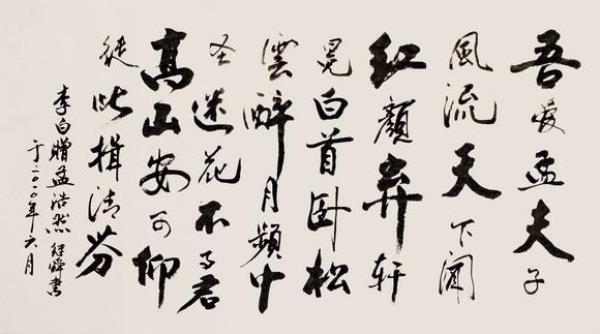 吾爱孟夫子
風流天下闻
红顏弃轩
冕白首卧松
雲醉月頻中
圣迷花不事君
高山安可仰
徒此揖清芬
李白贈孟浩然 书
于二〇一〇年六月